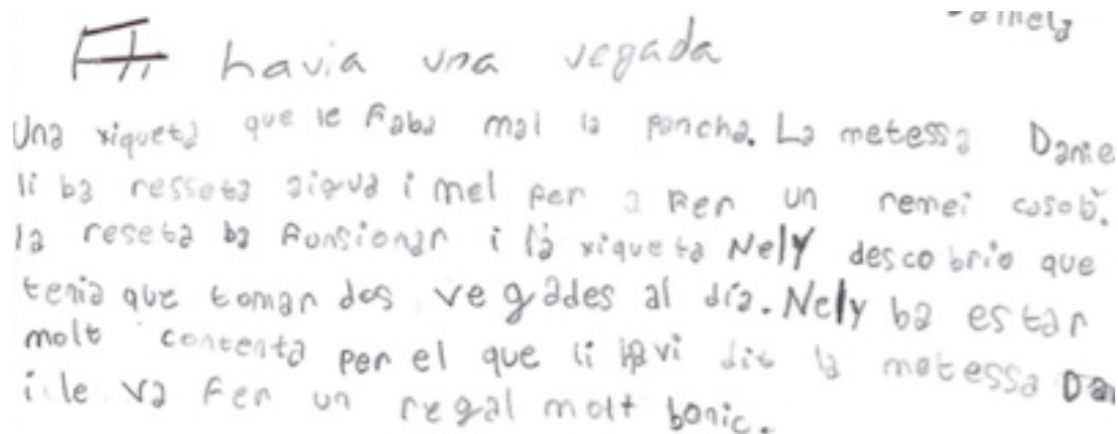 Daniela
havia una vegada
Una xiqueta que le faba mal la pancha. La metessa Danie
li ba resseta aigua i mel per a fer un remei casob.
la reseta ba funsionar i la xiqueta Nely descobrio que
tenia que tomar dos vegades al día. Nely ba estar
molt contenta per el que li havi dit la metessa Da
i le va fer un regal molt bonic.